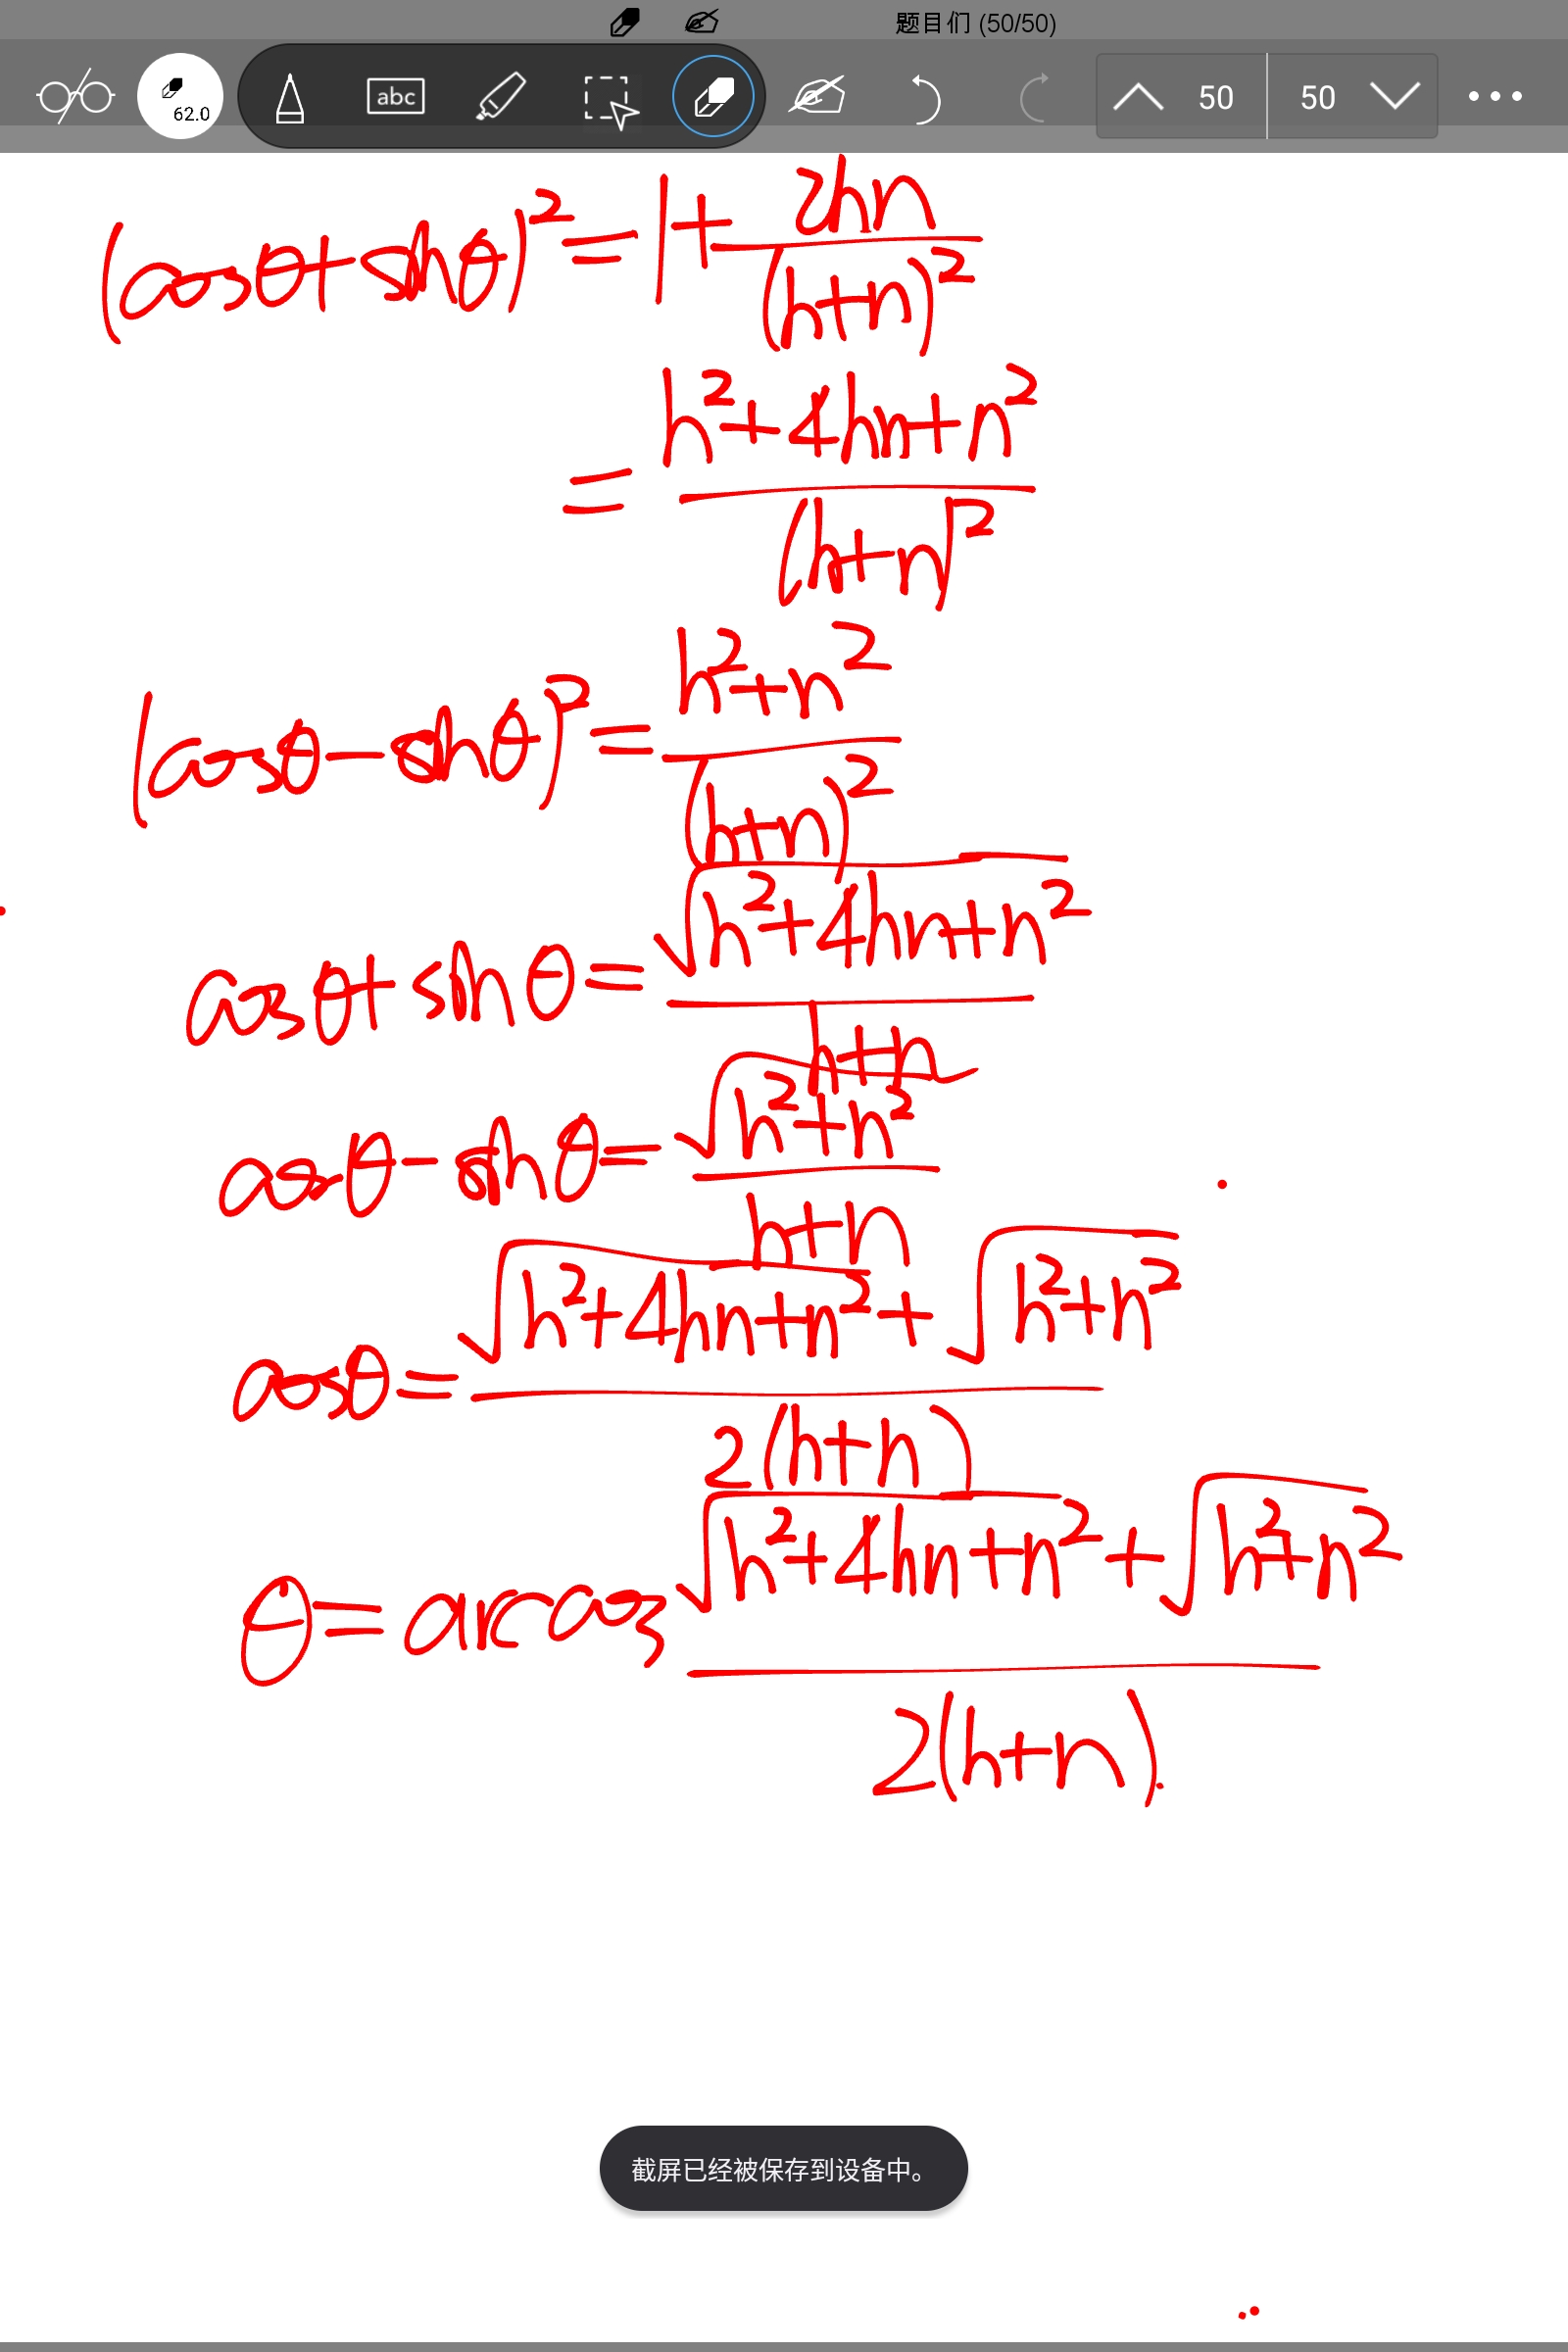 题目们 (50/50)
62.0 abc 50 50
(cosθ+sinθ)²=1+2hn/(h+n)²
=(h²+4hn+n²)/(h+n)²
(cosθ-sinθ)²=(h²+n²)/(h+n)²
cosθ+sinθ=√(h²+4hn+n²)/(h+n)
cosθ-sinθ=√(h²+n²)/(h+n)
cosθ=(√(h²+4hn+n²)+√(h²+n²))/2(h+n)
θ=arccos (√(h²+4hn+n²)+√(h²+n²))/2(h+n).
截屏已经被保存到设备中。